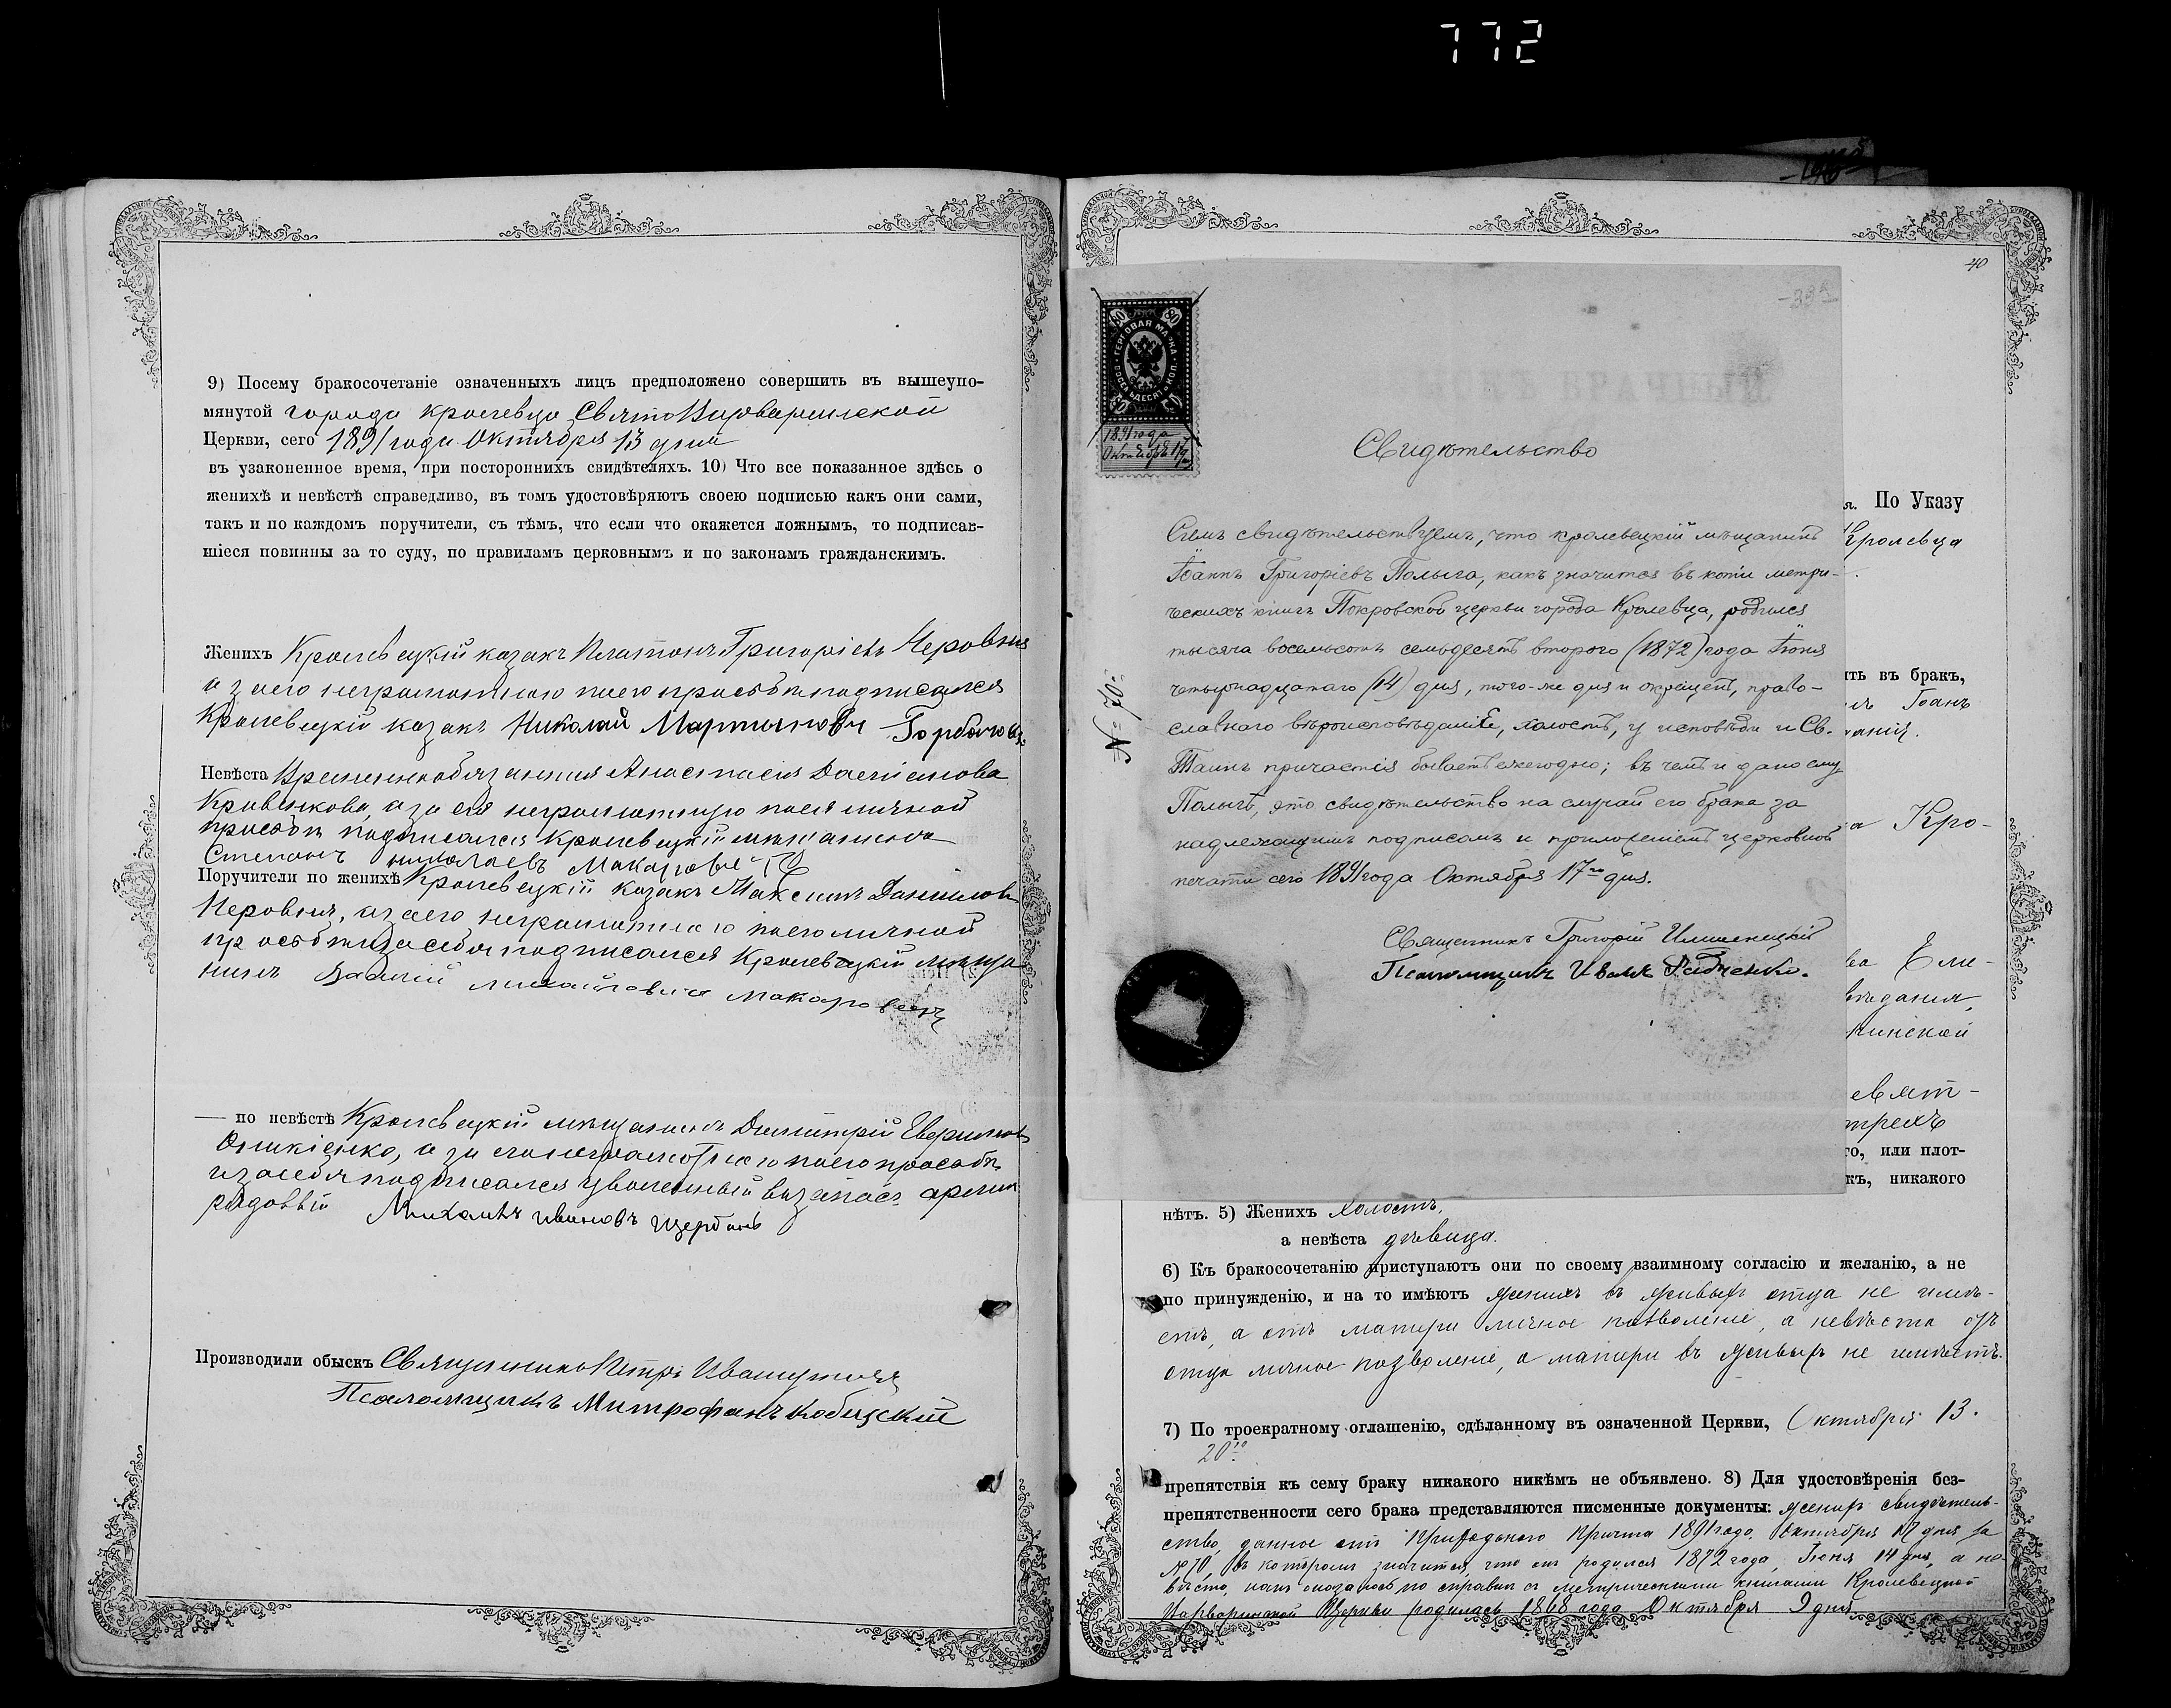 772
9) Посему бракосочетаніе означенныхъ лицъ предположено совершить въ вышеупо-
мянутой города Кролевца СвятоВарваринской
Церкви, сего 1891 года Октября 13 дня
въ узаконенное время, при постороннихъ свидѣтеляхъ. 10) Что все показанное здѣсь о
женихѣ и невѣстѣ справедливо, въ томъ удостовѣряютъ своею подписью какъ они сами,
такъ и по каждомъ поручители, съ тѣмъ, что если что окажется ложнымъ, то подписав-
шіеся повинны за то суду, по правиламъ церковнымъ и по законамъ гражданскимъ.
Женихъ Кролевецкій казакъ Платонъ Григоріевъ
а за его неграмотного по его просьбѣ подписался
Кролевецкій казакъ Николай Мартиновъ
Невѣста Анастасія
а за ея неграмотную по ея личной
просьбѣ подписался Кролевецкій мѣщанинъ
Степанъ Николаевъ
Поручители по женихѣ Кролевецкій казакъ Максимъ Даниловъ
а за его неграмотного по его личной
просьбѣ и за себя подписался Кролевецкій мѣща
нинъ Михайловичъ
— по невѣстѣ Кролевецкій мѣщанинъ Димитрій
а за его неграмотного по его просьбѣ
и за себя подписался уволенный въ запасъ арміи
рядовый Ивановъ
Производили обыскъ Священникъ Петръ
Псаломщикъ Митрофанъ
40
ГЕРБОВАЯ МАРКА
ВОСЕМЬДЕСЯТЪ КОП.
80
1891 года
Октября 17
Свидѣтельство
Симъ свидѣтельствуемъ, что кролевецкій мѣщанинъ
Іоаннъ Григоріевъ Палыга, какъ значится въ копіи метри-
ческихъ книгъ Покровской церкви города Кролевца, родился
тысяча восемьсотъ семьдесятъ второго (1872) года Іюня
четырнадцатаго (14) дня, того-же дня и окрещенъ, право-
славнаго вѣроисповѣданія, холостъ, у исповѣди и Св.
Таинъ причастія бываетъ ежегодно; въ чемъ и дано ему
Палыгѣ, это свидѣтельство на случай его брака за
надлежащимъ подписомъ и приложеніемъ церковной
печати сего 1891 года Октября 17го дня.
№ 70.
Священникъ Григорій
Псаломщикъ Иванъ
я. По Указу
Кролевца
ить въ бракъ,
Іоанъ
ванія.
а Кро-
ва Ели-
вѣданія,
ринской
девят-
трехъ
го, или плот-
къ, никакого
нѣтъ. 5) Женихъ холостъ,
а невѣста дѣвица.
6) Къ бракосочетанію приступаютъ они по своему взаимному согласію и желанію, а не
по принужденію, и на то имѣютъ женихъ въ живыхъ отца не имѣ-
етъ, а отъ матери личное позволеніе, а невѣста отъ
отца личное позволеніе, а матери въ живыхъ не имѣетъ.
7) По троекратному оглашенію, сдѣланному въ означенной Церкви, Октября 13.
20го
препятствія къ сему браку никакого никѣмъ не объявлено. 8) Для удостовѣренія без-
препятственности сего брака представляются писменные документы: женихъ свидѣтель-
ство, данное отъ приходского причта 1891 года Октября 17 дня за
№ 70, въ которомъ значится, что онъ родился 1872 года Іюня 14 дня, а не-
вѣста, какъ оказалось по справкѣ съ метрическими книгами Кролевецкой
Варваринской Церкви родилась 1868 года Октября 9 дня